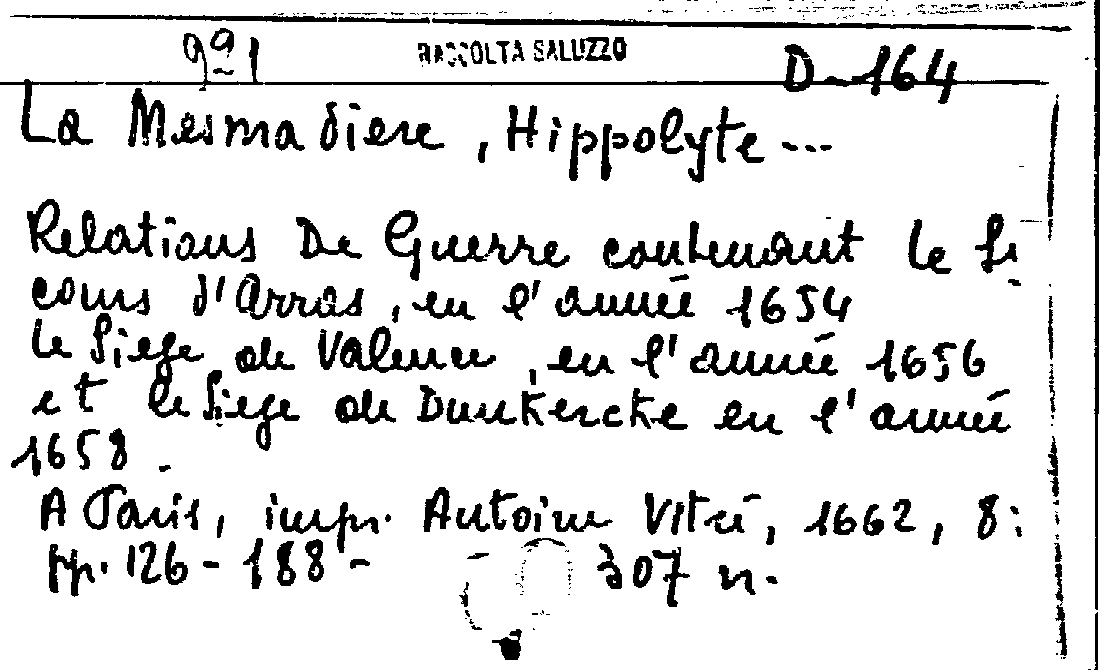 991 RACCOLTA SALUZZO D-164
La Mesnadiere, Hippolyte ...
Relations De Guerre contenant le Se
cours d'Arras, en l'année 1654
le Siege de Valence, en l'année 1656
et le Siege de Dunkercke en l'année
1658.
A Paris, impr. Antoine Vitré, 1662, 8:
pp. 126 - 188 - 307 n.